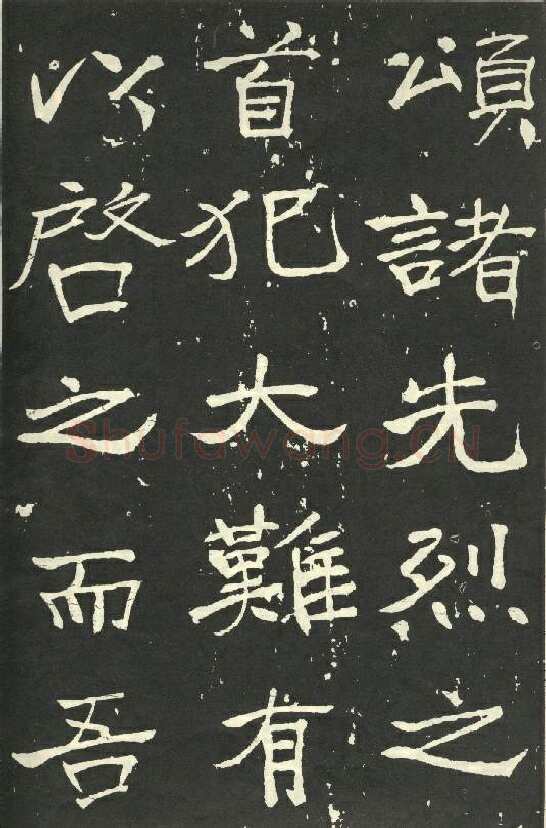 頌諸先烈之
首犯大難有
以啓之而吾
Shufawang.CN